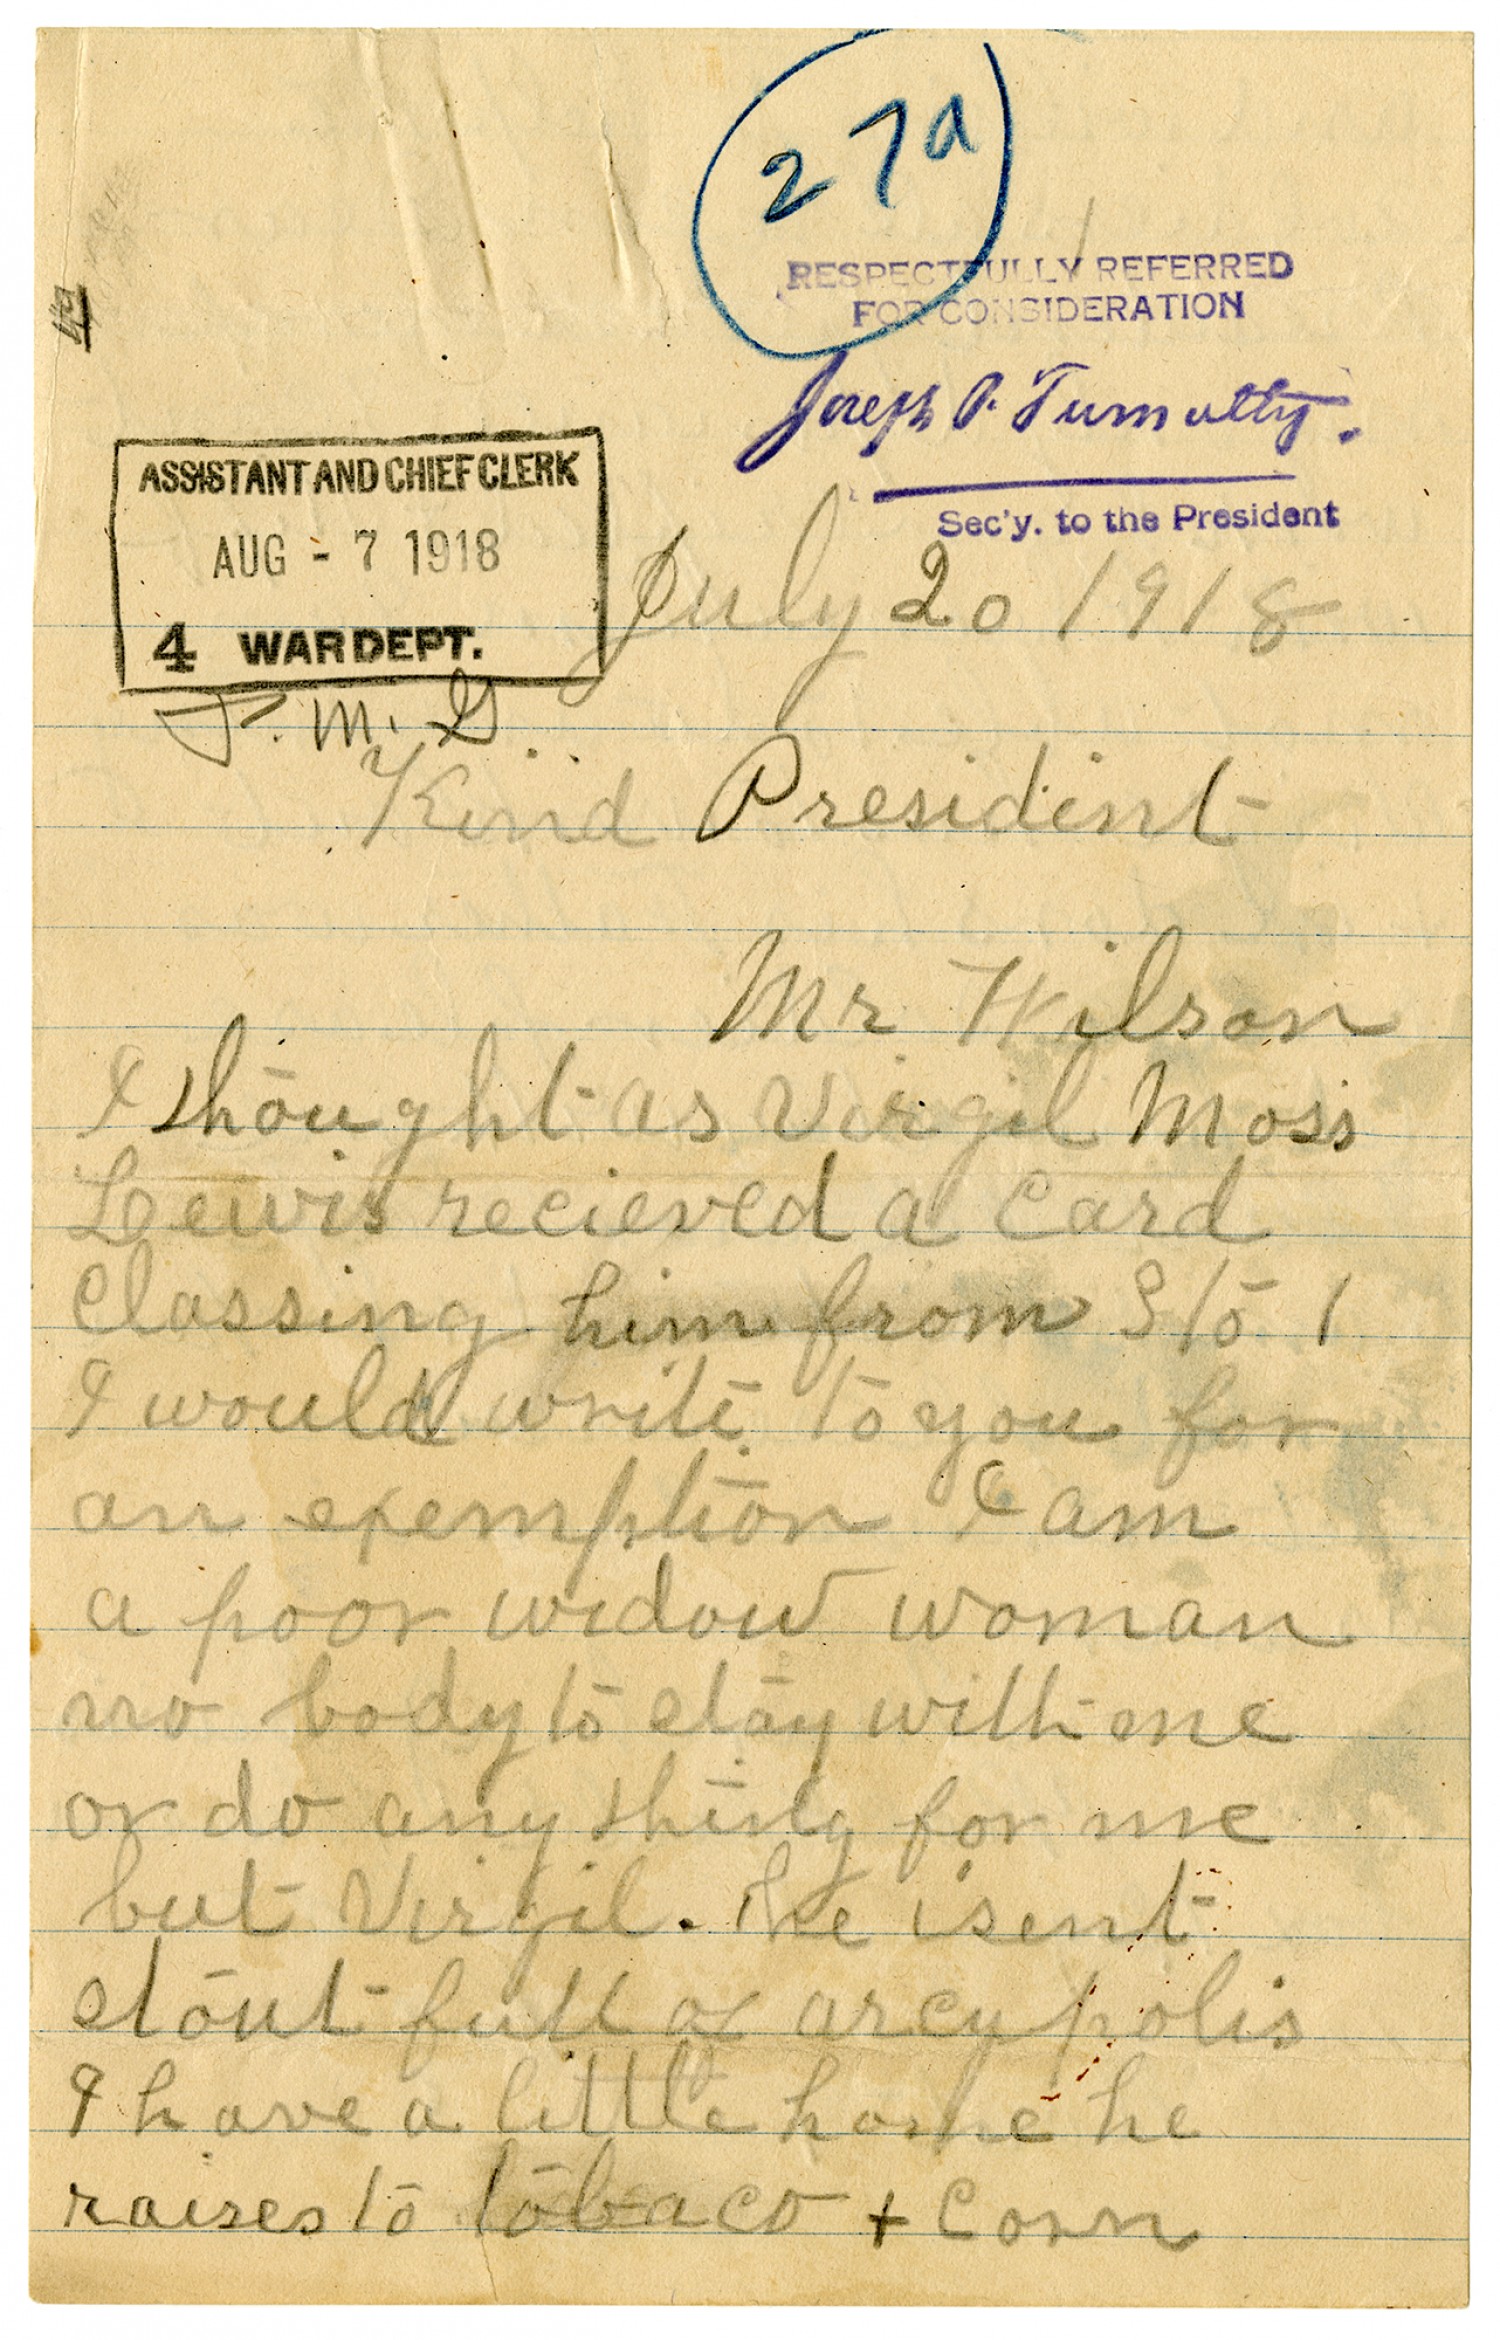 27a
RESPECTFULLY REFERRED
FOR CONSIDERATION
Joseph P. Tumulty.
Sec'y. to the President
ASSISTANT AND CHIEF CLERK
AUG - 7 1918
4 WAR DEPT.
July 20 1918
Kind President
Mr Wilson
I thought as Virgil Moss
Lewis recieved a Card
Classing him from 3 to 1
I would write to you for
an exemption I am
a poor widow woman
no body to stay with me
or do any thing for me
but Virgil. he isent
stout full of arcy polis
I have a little home he
raises to tobaco + Corn